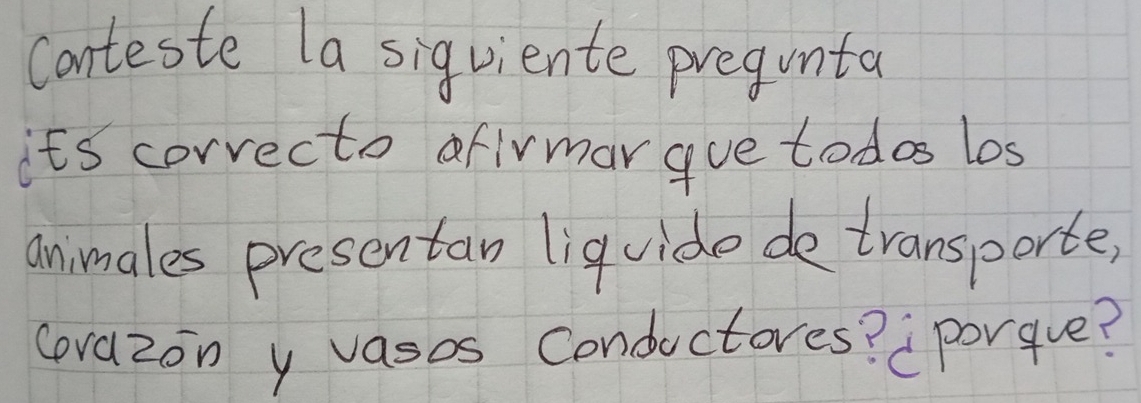 Conteste la siguiente pregunta
¿Es correcto afirmar que todos los
animales presentan liquido de transporte,
corazón y vasos conductores? ¿porque?